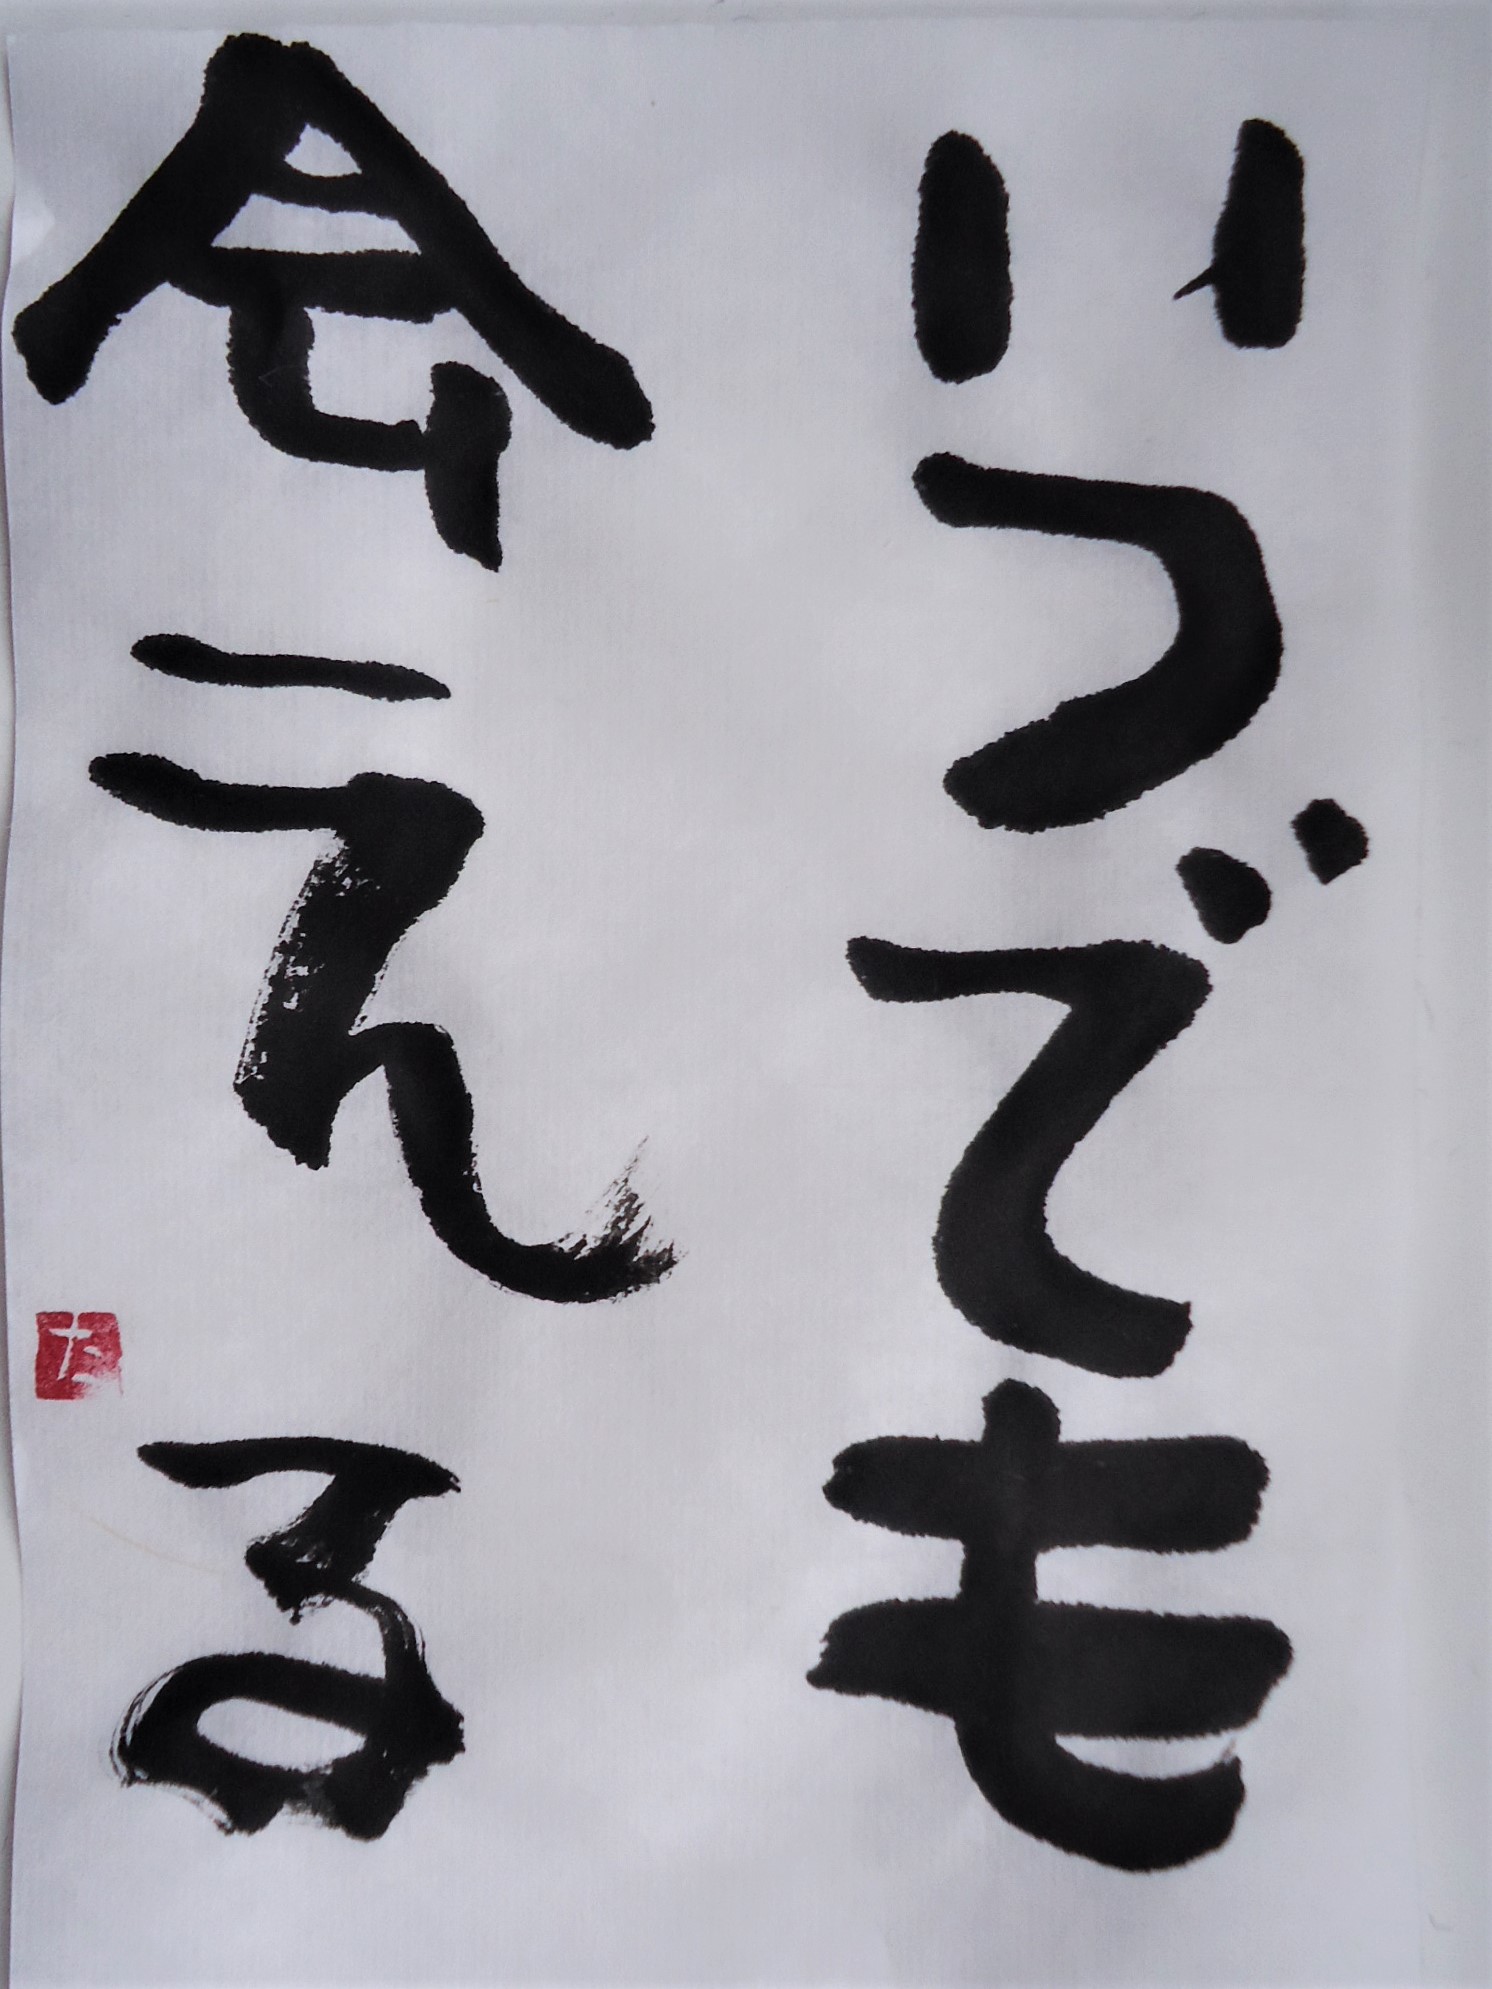 いつでも
会える
た